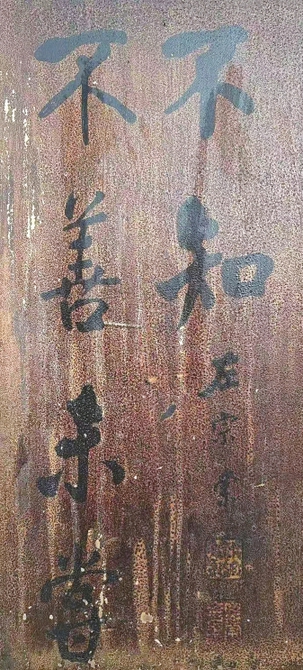 不善未嘗
不知
左宗棠